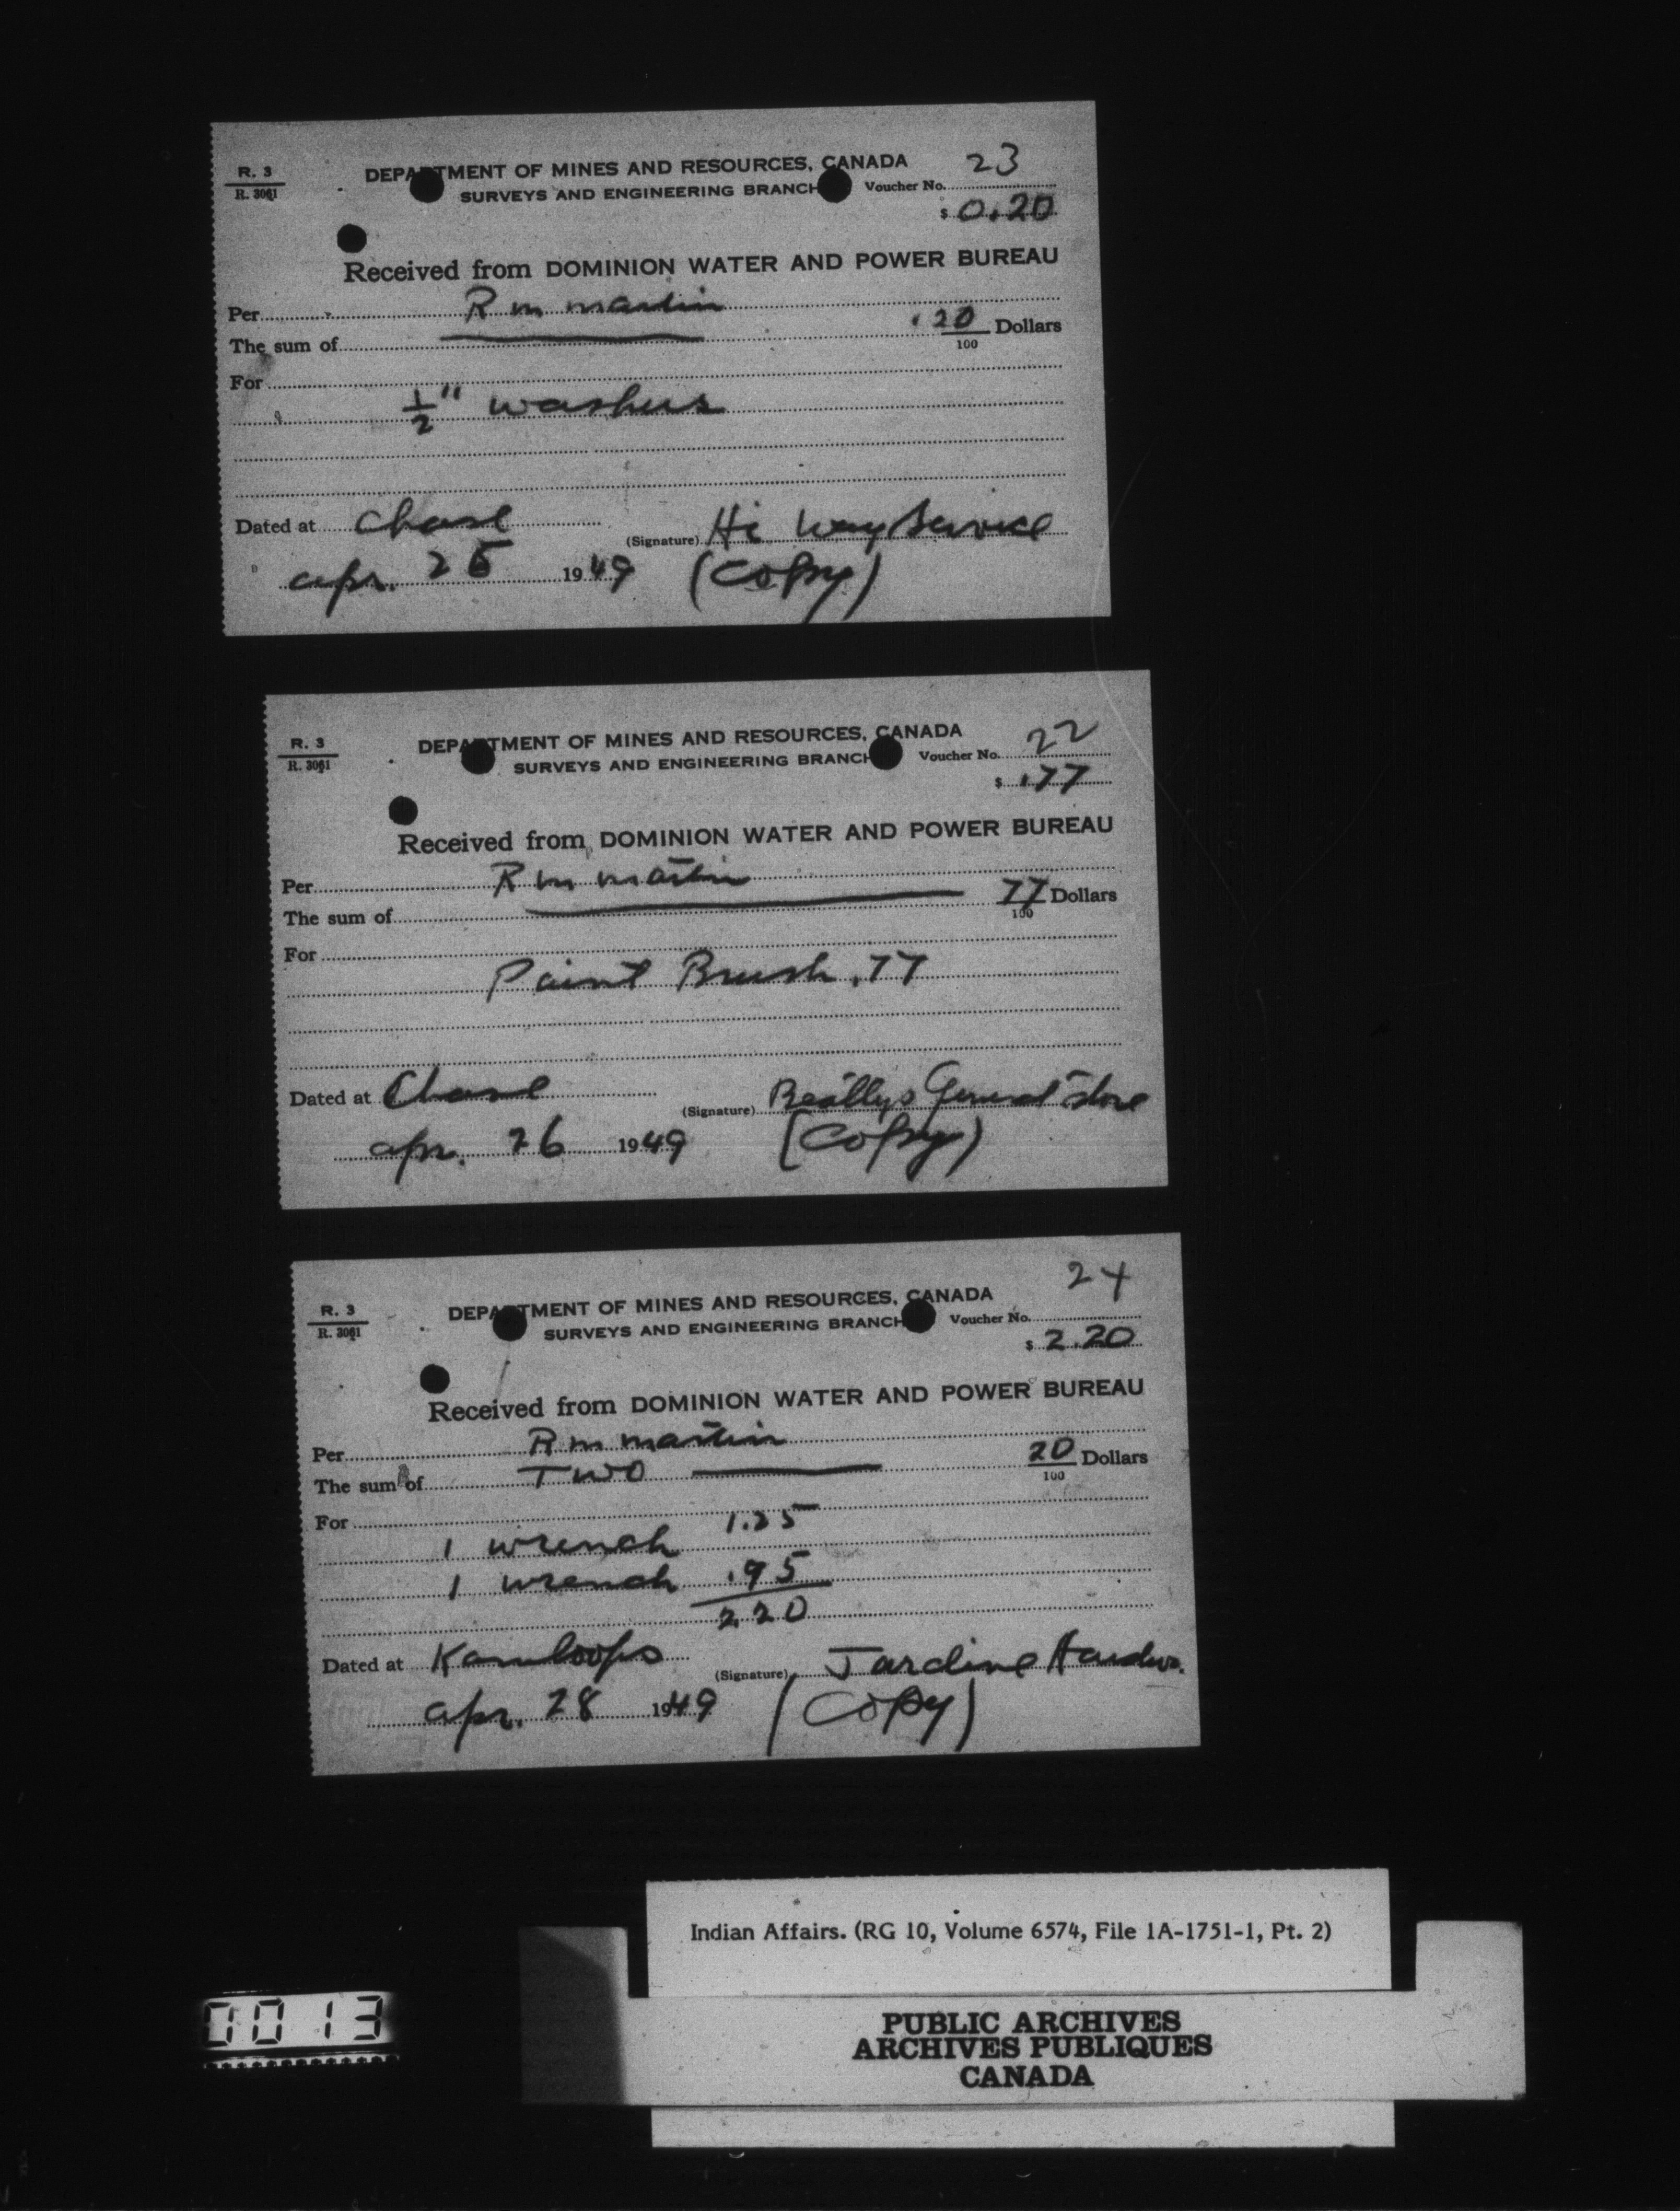 R. 3
R. 3061
DEPARTMENT OF MINES AND RESOURCES, CANADA
SURVEYS AND ENGINEERING BRANCH
Voucher No. 23
$ 0.20
Received from DOMINION WATER AND POWER BUREAU
Per R m martin
The sum of .20/100 Dollars
For
1/2" washers
Dated at Chase
(Signature) Hi Way Service
apr. 26 1949 (Copy)
R. 3
R. 3061
DEPARTMENT OF MINES AND RESOURCES, CANADA
SURVEYS AND ENGINEERING BRANCH
Voucher No. 22
$ .77
Received from DOMINION WATER AND POWER BUREAU
Per R m martin
The sum of 77/100 Dollars
For
Paint Brush .77
Dated at Chase
(Signature) General Store
apr. 26 1949 (Copy)
R. 3
R. 3061
DEPARTMENT OF MINES AND RESOURCES, CANADA
SURVEYS AND ENGINEERING BRANCH
Voucher No. 24
$ 2.20
Received from DOMINION WATER AND POWER BUREAU
Per R m martin
The sum of Two 20/100 Dollars
For
1 wrench 1.25
1 wrench .95
2.20
Dated at Kamloops
(Signature) Jardine Hardw.
apr. 28 1949 (Copy)
Indian Affairs. (RG 10, Volume 6574, File 1A-1751-1, Pt. 2)
PUBLIC ARCHIVES
ARCHIVES PUBLIQUES
CANADA
0013